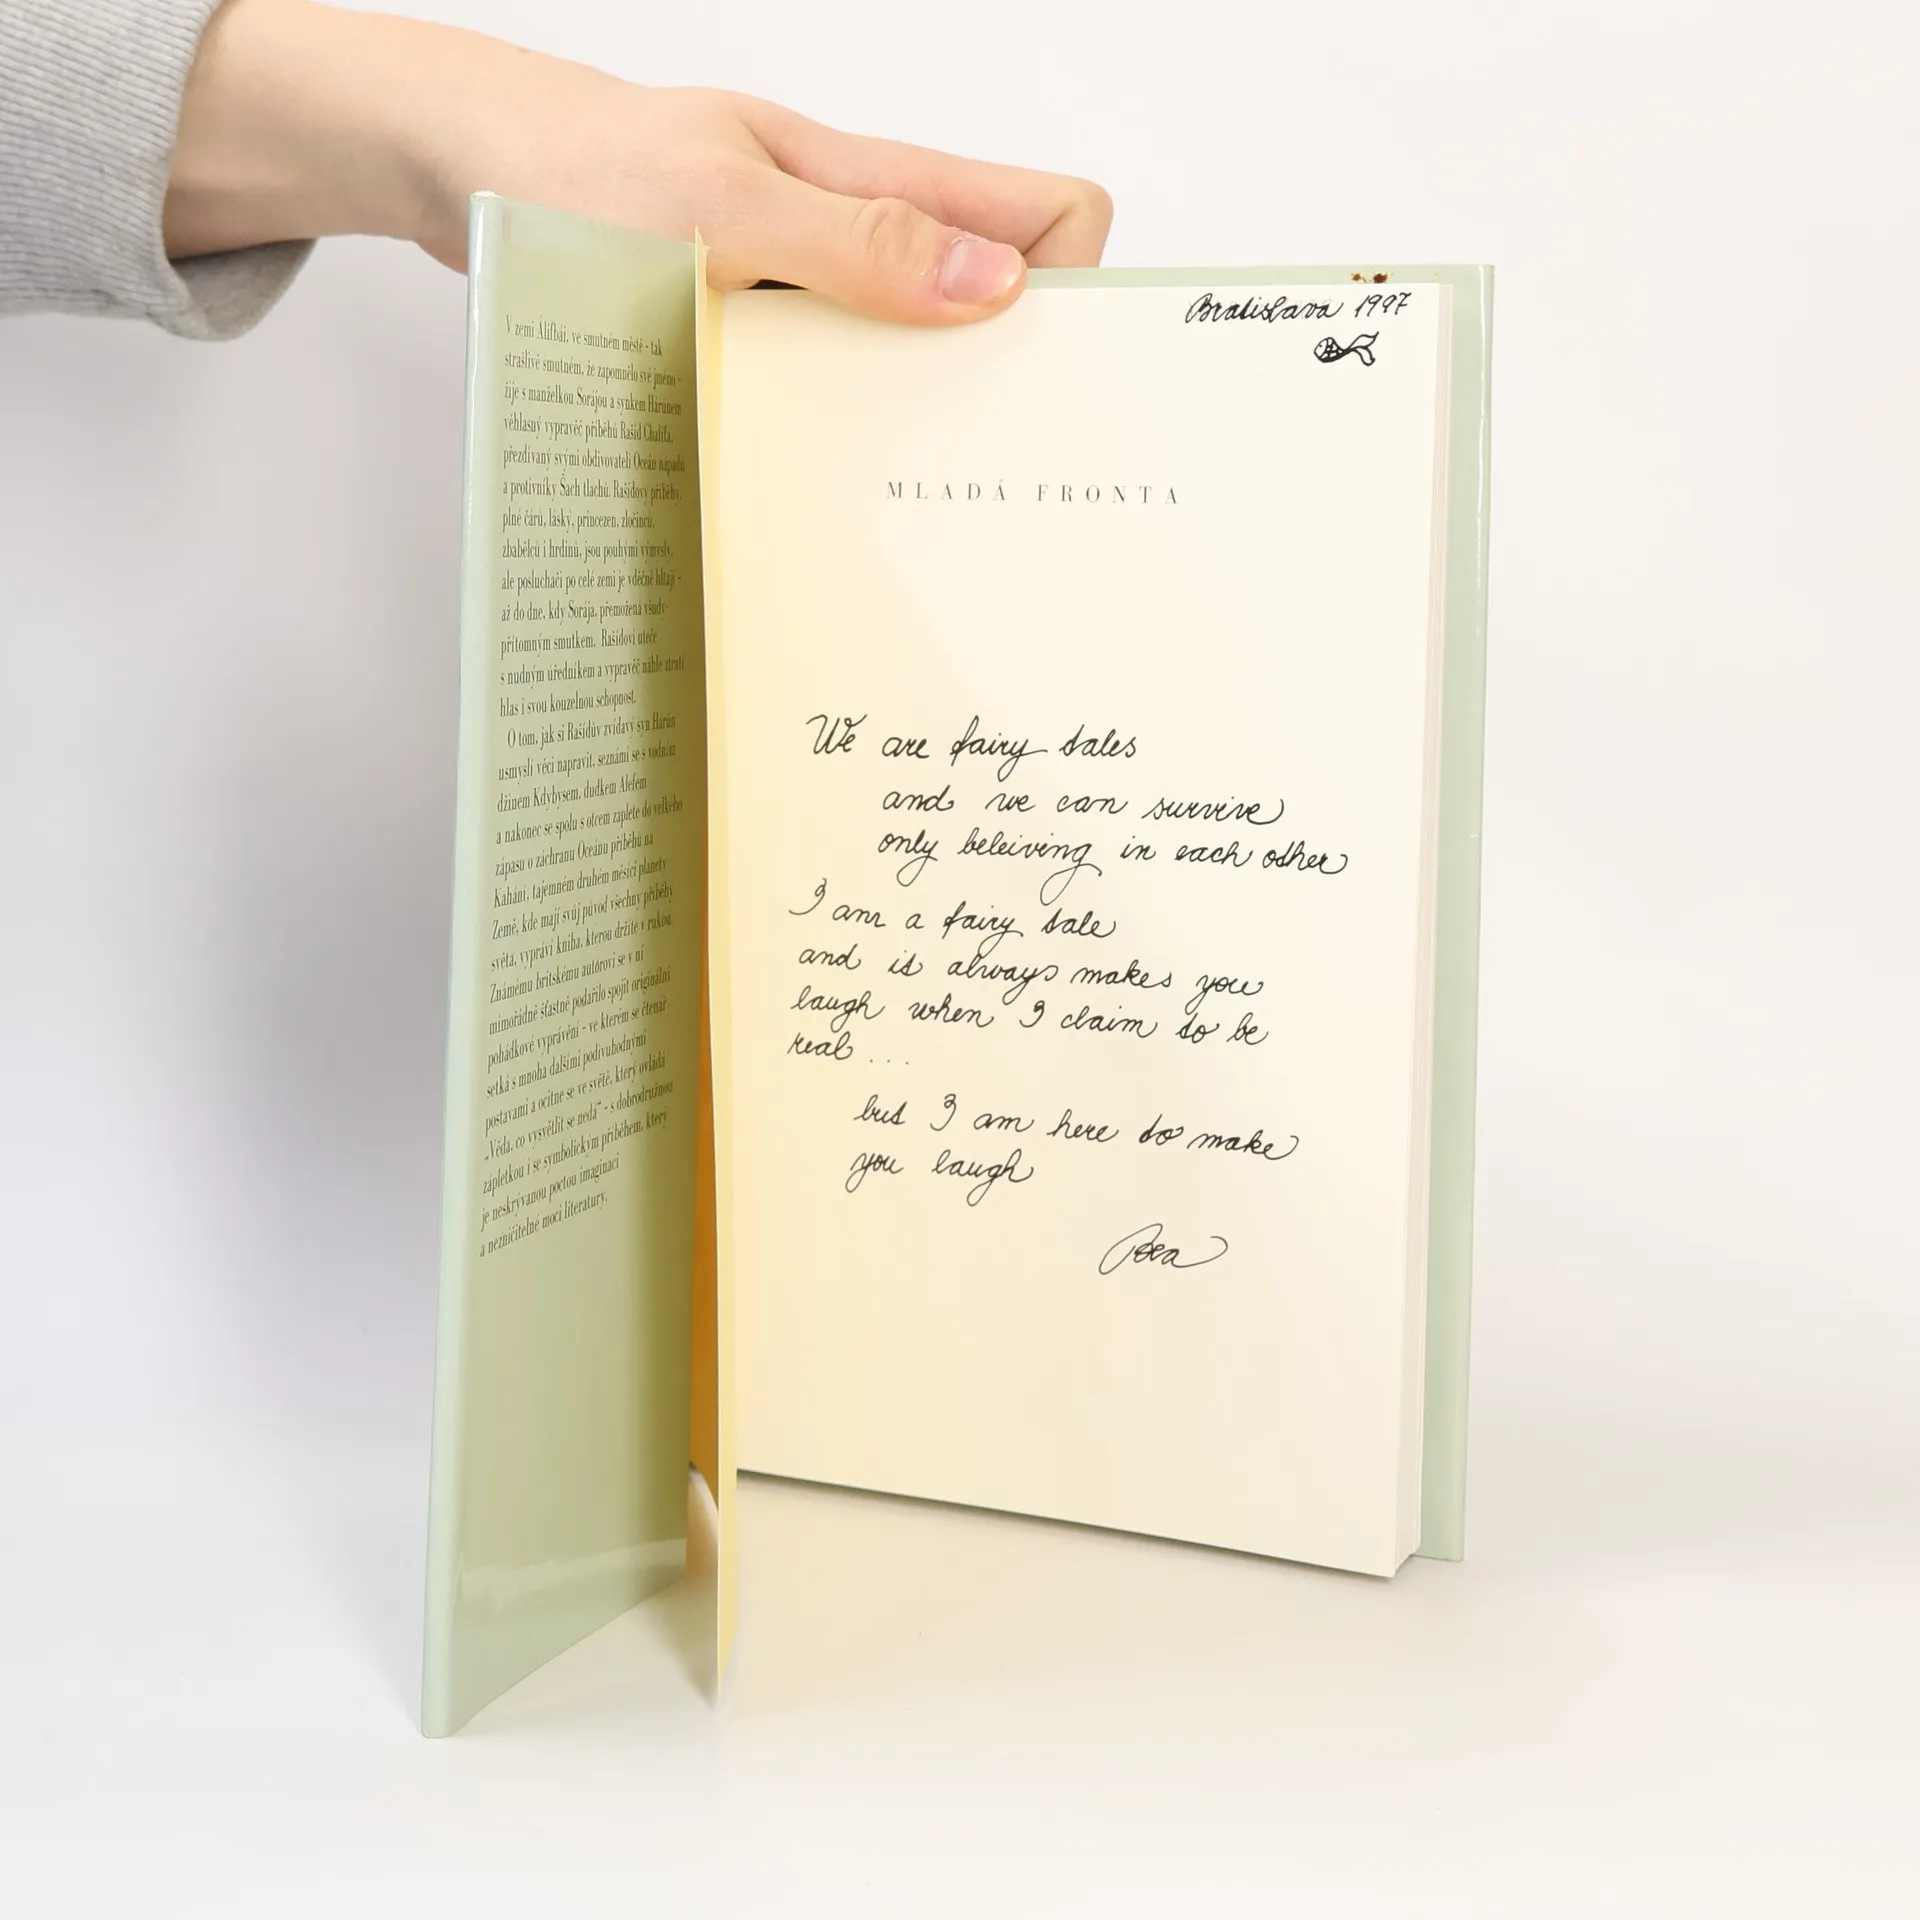 V zemi Álifbái, ve smutném městě - tak
strašlivě smutném, že zapomnělo své jméno -
žije s manželkou Sorájou a synkem Hárúnem
věhlasný vypravěč příběhů Rašíd Chalífa,
přezdívaný svými obdivovateli Oceán nápadů
a protivníky Šach tlachů. Rašídovy příběhy,
plné čárů, lásky, princezen, zločinců,
zbabělců i hrdinů, jsou pouhými výmysly,
ale posluchači po celé zemi je vděčně hltají -
až do dne, kdy Sorája, přemožená všudy-
přítomným smutkem, Rašídovi uteče
s nudným úředníkem a vypravěč náhle ztratí
hlas i svou kouzelnou schopnost.
O tom, jak si Rašídův zvídavý syn Hárún
usmyslí věci napravit, seznámí se s vodním
džinem Kdybysem, dudkem Alefem
a nakonec se spolu s otcem zaplete do velkého
zápasu o záchranu Oceánu příběhů na
Kahání, tajemném druhém měsíci planety
Země, kde mají svůj původ všechny příběhy
světa, vypráví kniha, kterou držíte v rukou.
Známému britskému autorovi se v ní
mimořádně šťastně podařilo spojit originální
pohádkové vyprávění - ve kterém se čtenář
setká s mnoha dalšími podivuhodnými
postavami a ocitne se ve světě, který ovládá
„Věda, co vysvětlit se nedá“ - s dobrodružnou
zápletkou i se symbolickým příběhem, který
je neskrývanou poctou imaginaci
a nezničitelné moci literatury.
Bratislava 1997
MLADÁ FRONTA
We are fairy tales
and we can survive
only beleiving in each other
I am a fairy tale
and it always makes you
laugh when I claim to be
real...
but I am here to make
you laugh
Bea